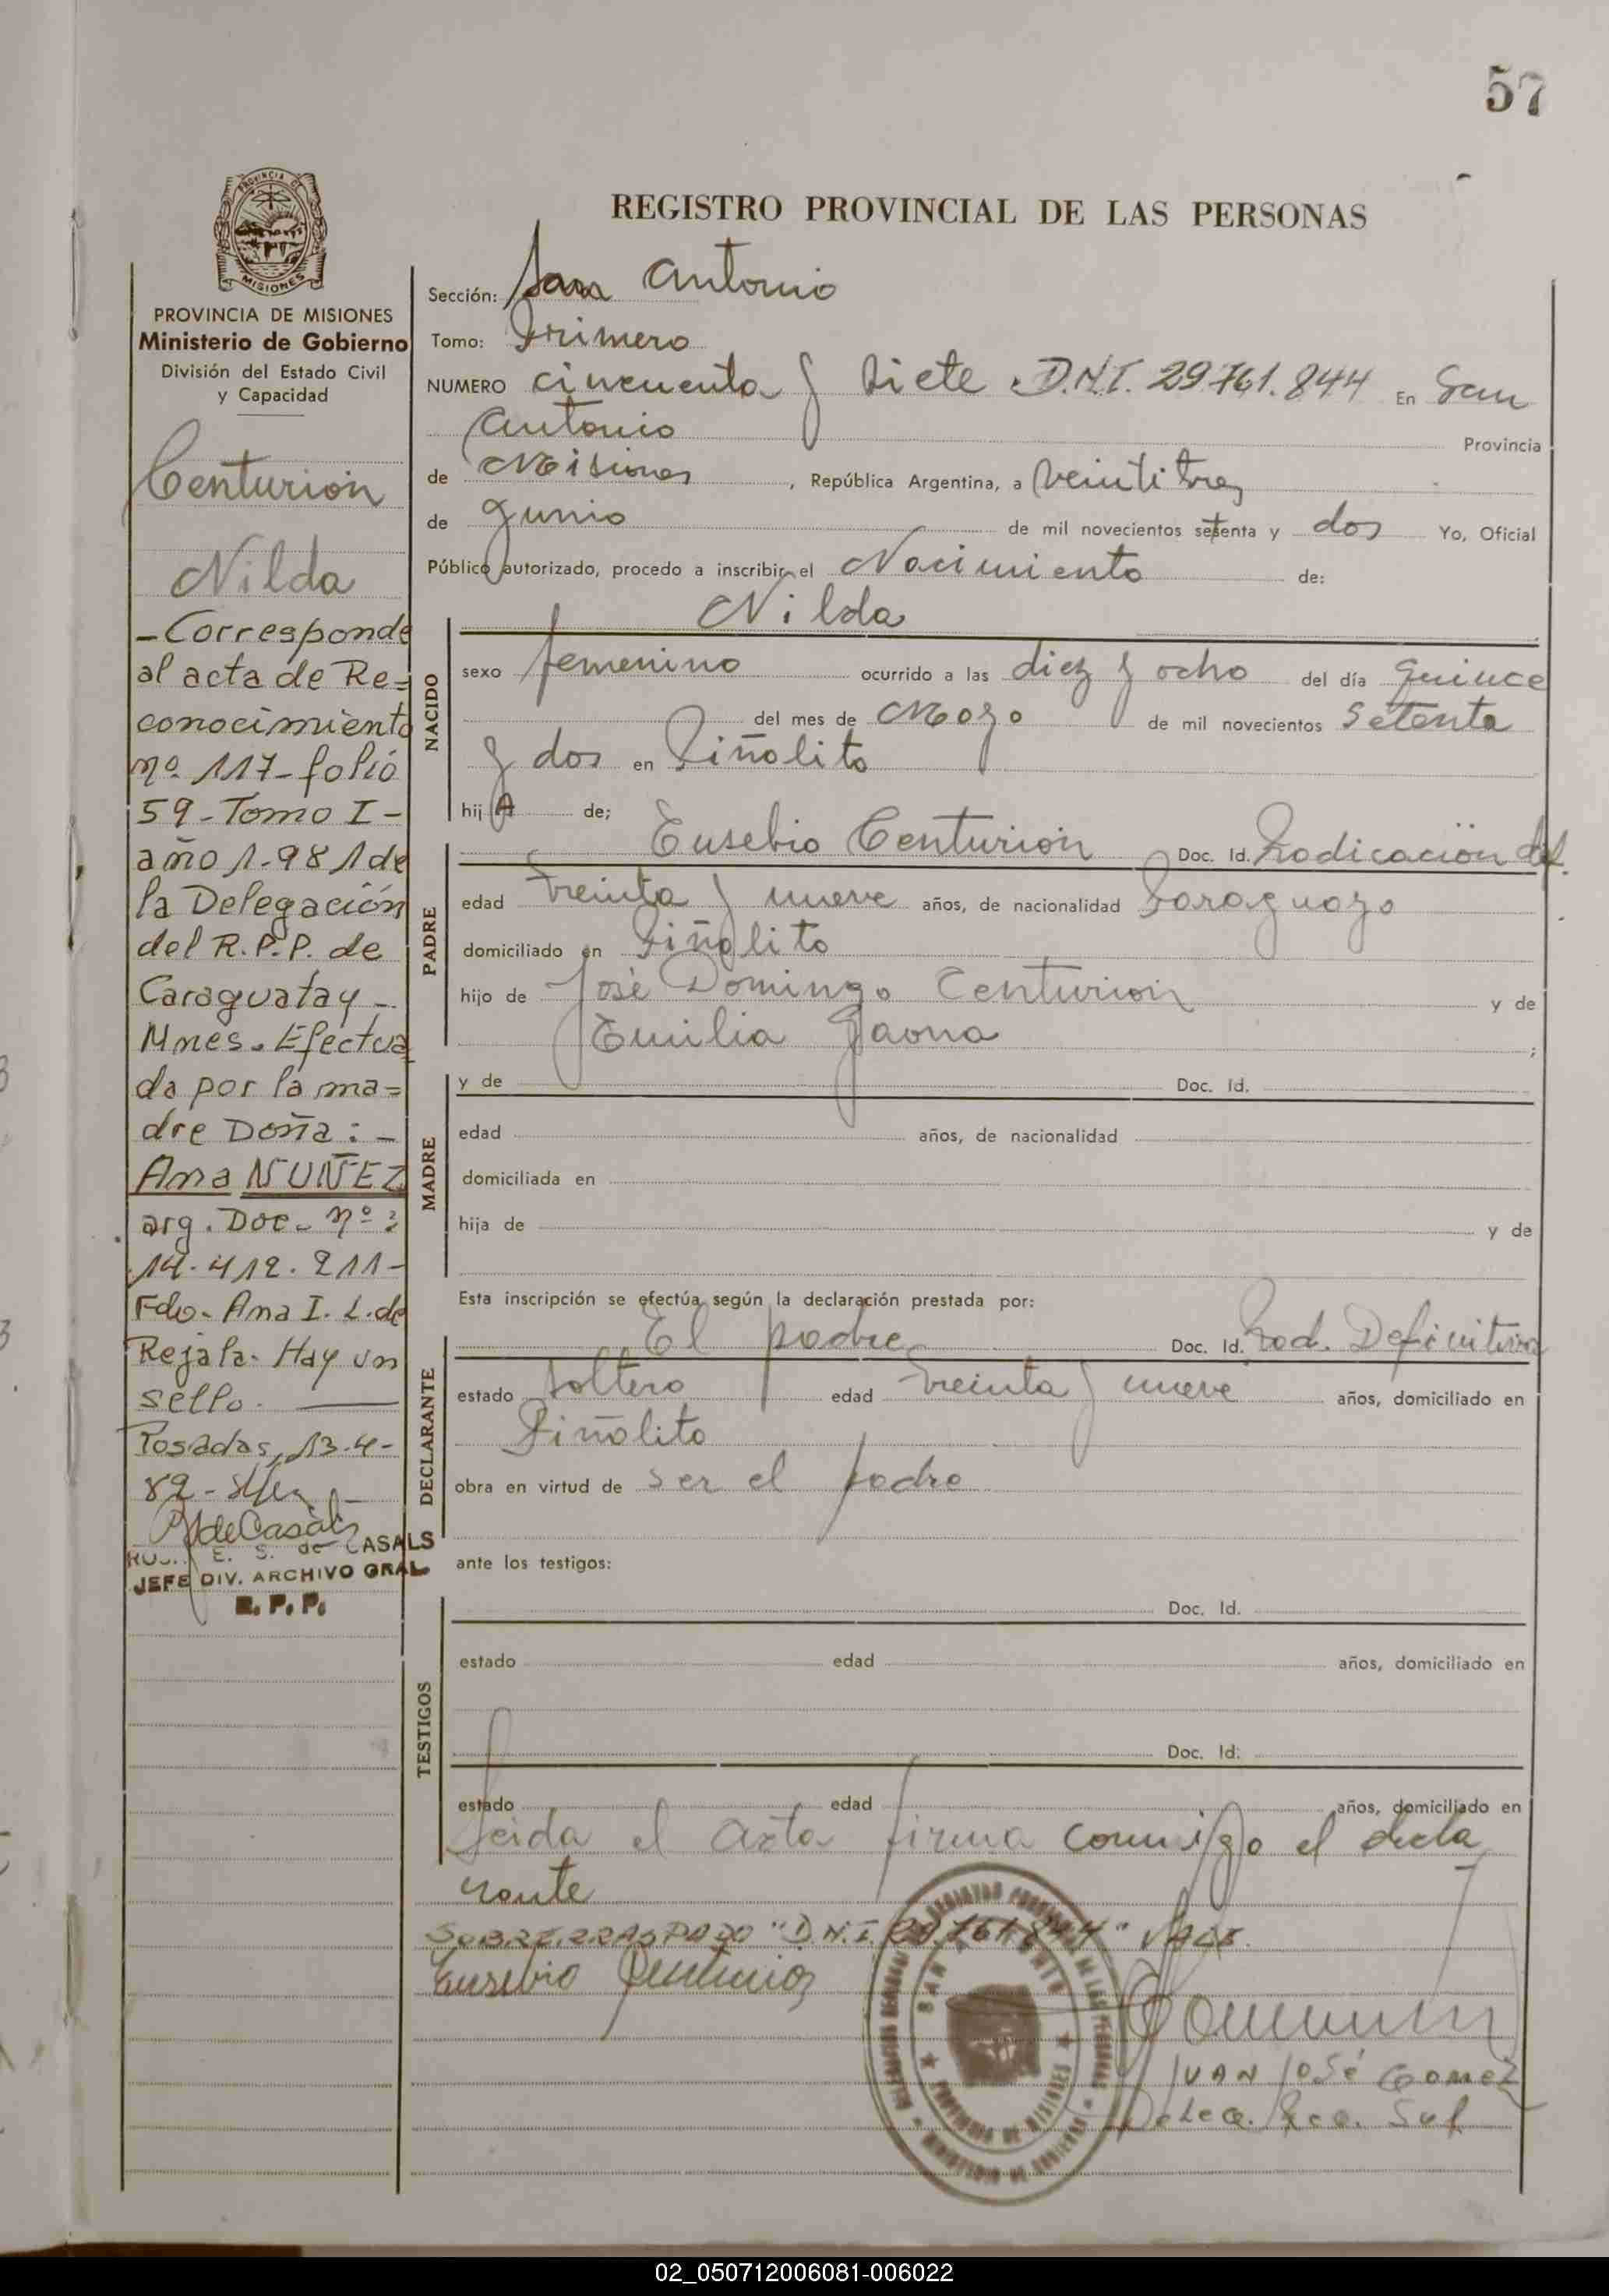 57
REGISTRO PROVINCIAL DE LAS PERSONAS
PROVINCIA DE MISIONES
Ministerio de Gobierno
División del Estado Civil
y Capacidad
Centurion
Nilda
- Corresponde
al acta de Re=
conocimiento
nº 117- folio
59 - Tomo I -
año 1.981 de
la Delegación
del R.P.P. de
Caraguatay -
Mnes. Efectua
da por la ma=
dre Doña : -
Ana NUÑEZ
arg. Doc. nº :
14.412.211-
Fdo. Ana I. L. de
Rejala. Hay un
sello.
Posadas, 13-4-
82 -
E. S. de CASALS
JEFE DIV. ARCHIVO GRAL
R. P. P.
Sección: San Antonio
Tomo: Primero
NUMERO cincuenta y siete D.N.I. 29.761.844 En San
Antonio Provincia
de Misiones , República Argentina, a veintitres
de Junio de mil novecientos setenta y dos Yo, Oficial
Público autorizado, procedo a inscribir el Nacimiento de:
Nilda
NACIDO
sexo femenino ocurrido a las diez y ocho del día quince
del mes de Mayo de mil novecientos setenta
y dos en Piñalito
hijA de;
PADRE
Eusebio Centurion Doc. Id. Radicación def.
edad treinta y nueve años, de nacionalidad Paraguayo
domiciliado en Piñalito
hijo de José Domingo Centurion y de
Emilia Gaona ;
MADRE
y de Doc. Id.
edad años, de nacionalidad
domiciliada en
hija de y de
Esta inscripción se efectúa según la declaración prestada por:
DECLARANTE
El padre Doc. Id. Rad. Definitiva
estado soltero edad treinta y nueve años, domiciliado en
Piñalito
obra en virtud de ser el padre
ante los testigos:
TESTIGOS
Doc. Id.
estado edad años, domiciliado en
Doc. Id:
estado edad años, domiciliado en
Leida el acta firma conmigo el decla
rante
SOBRERRASPADO "D.N.I. 29.761.844" VALE.
Eusebio Centurion
JUAN JOSÉ GOMEZ
02_050712006081-006022